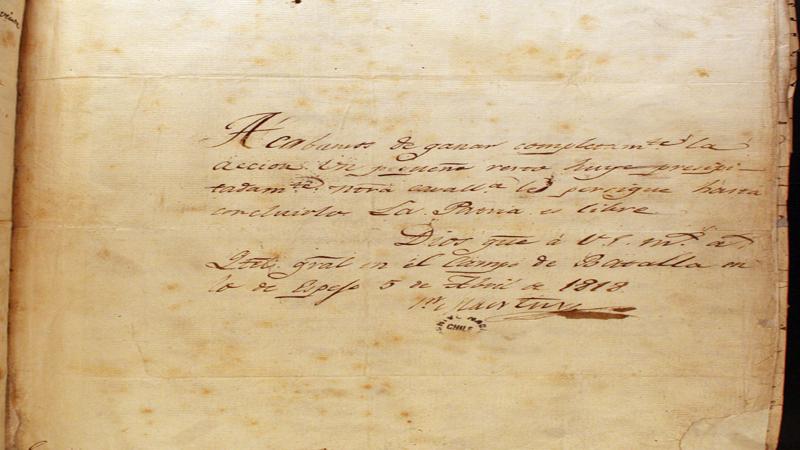 Acabamos de ganar completamte la
accion. Un pequeño resto huye precipi-
tadamte. nora cavalla lo persigue hasta
concluirlo. La Patria es libre
Dios gue á V.S. ms. as.
Qtel. gral en el Campo de Batalla en
lo de Espejo 5 de Abril de 1818
Sn Martin
CHILE